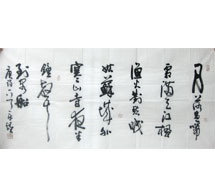 月落烏啼
霜滿天江楓
漁火對愁眠
姑蘇城外
寒山寺夜半
鐘聲
到客船